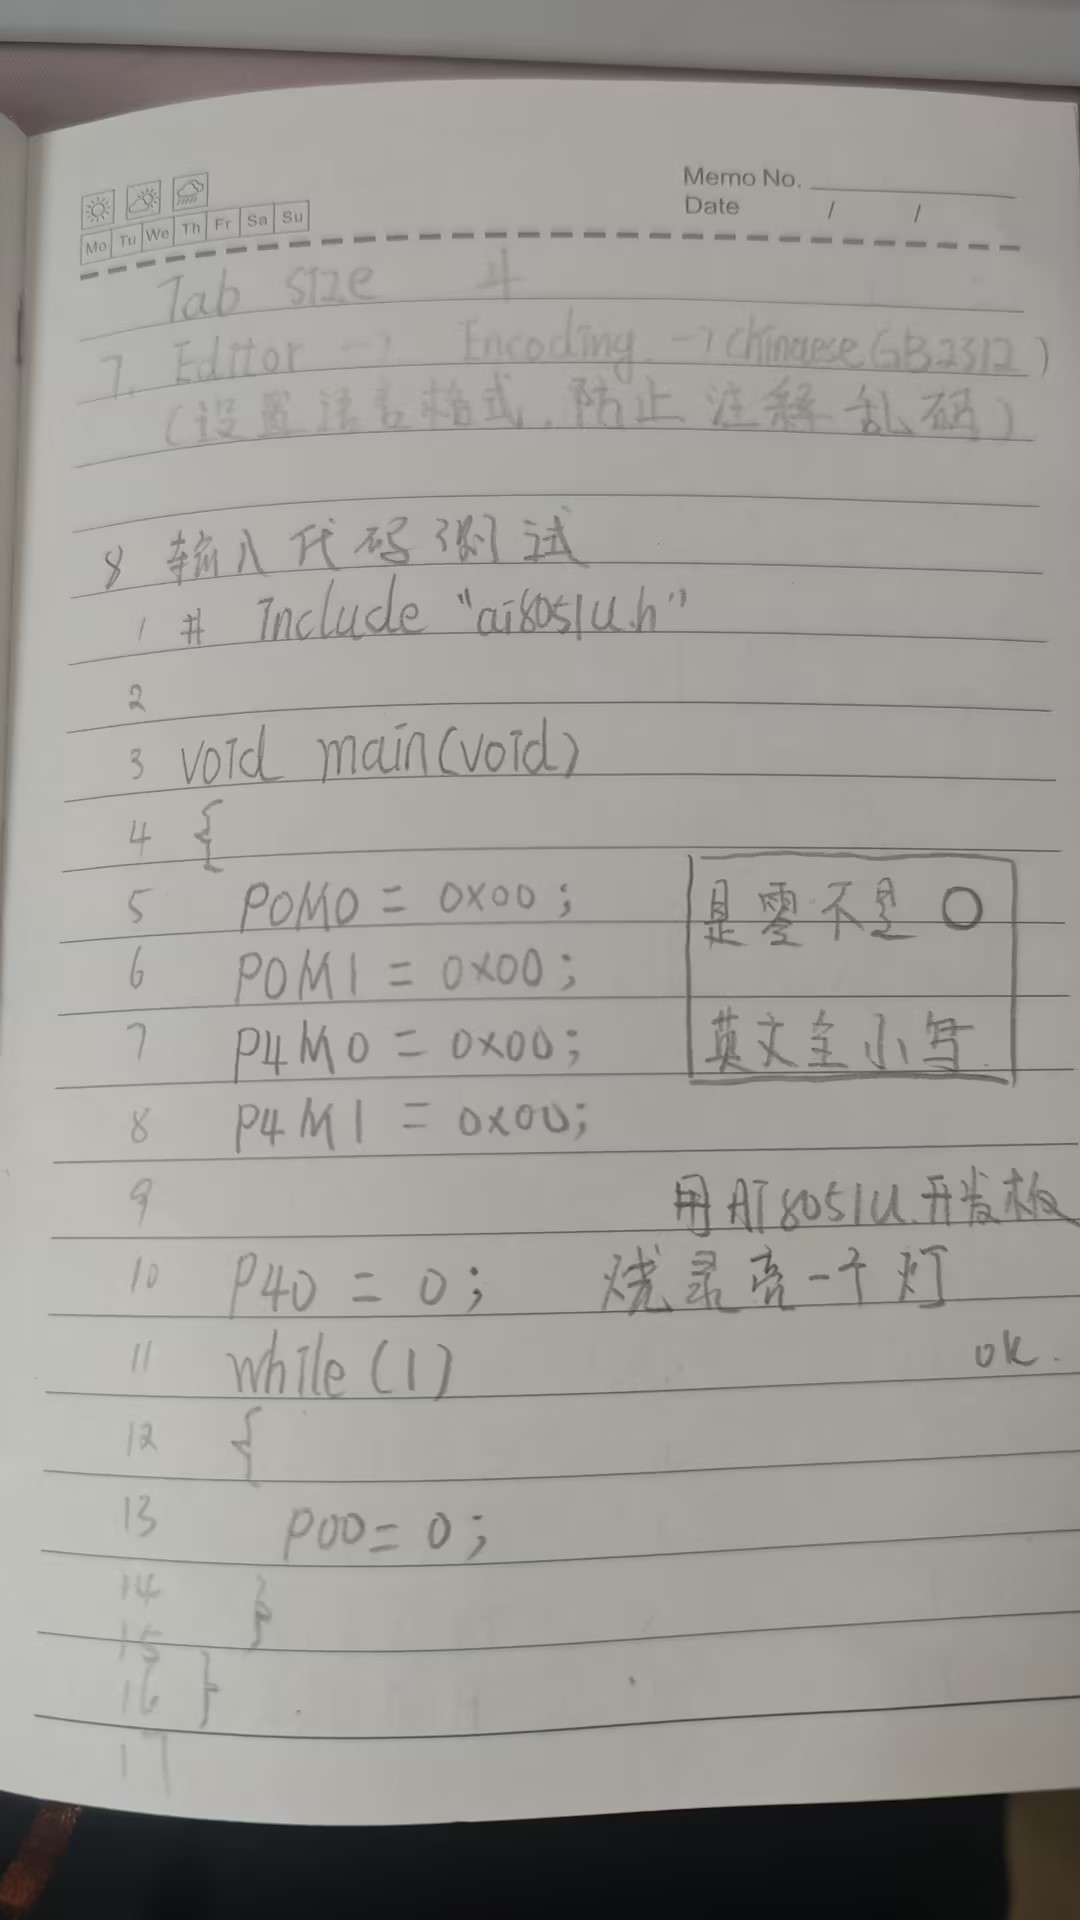 Memo No.
Date / /
Mo Tu We Th Fr Sa Su
Tab size 4
7. Editor → Encoding → Chinaese(GB2312)
(设置语言格式.防止注释乱码)
8 输入代码测试
1 # Include "ai8051U.h"
2
3 void main(void)
4 {
5 P0M0 = 0x00;
6 P0M1 = 0x00;
7 P4M0 = 0x00;
8 P4M1 = 0x00;
是零不是O
英文全小写.
9
用AI8051U.开发板
10 P40 = 0;
烧录亮一个灯
11 while(1)
ok.
12 {
13 P00= 0;
14 }
15
16 }
17